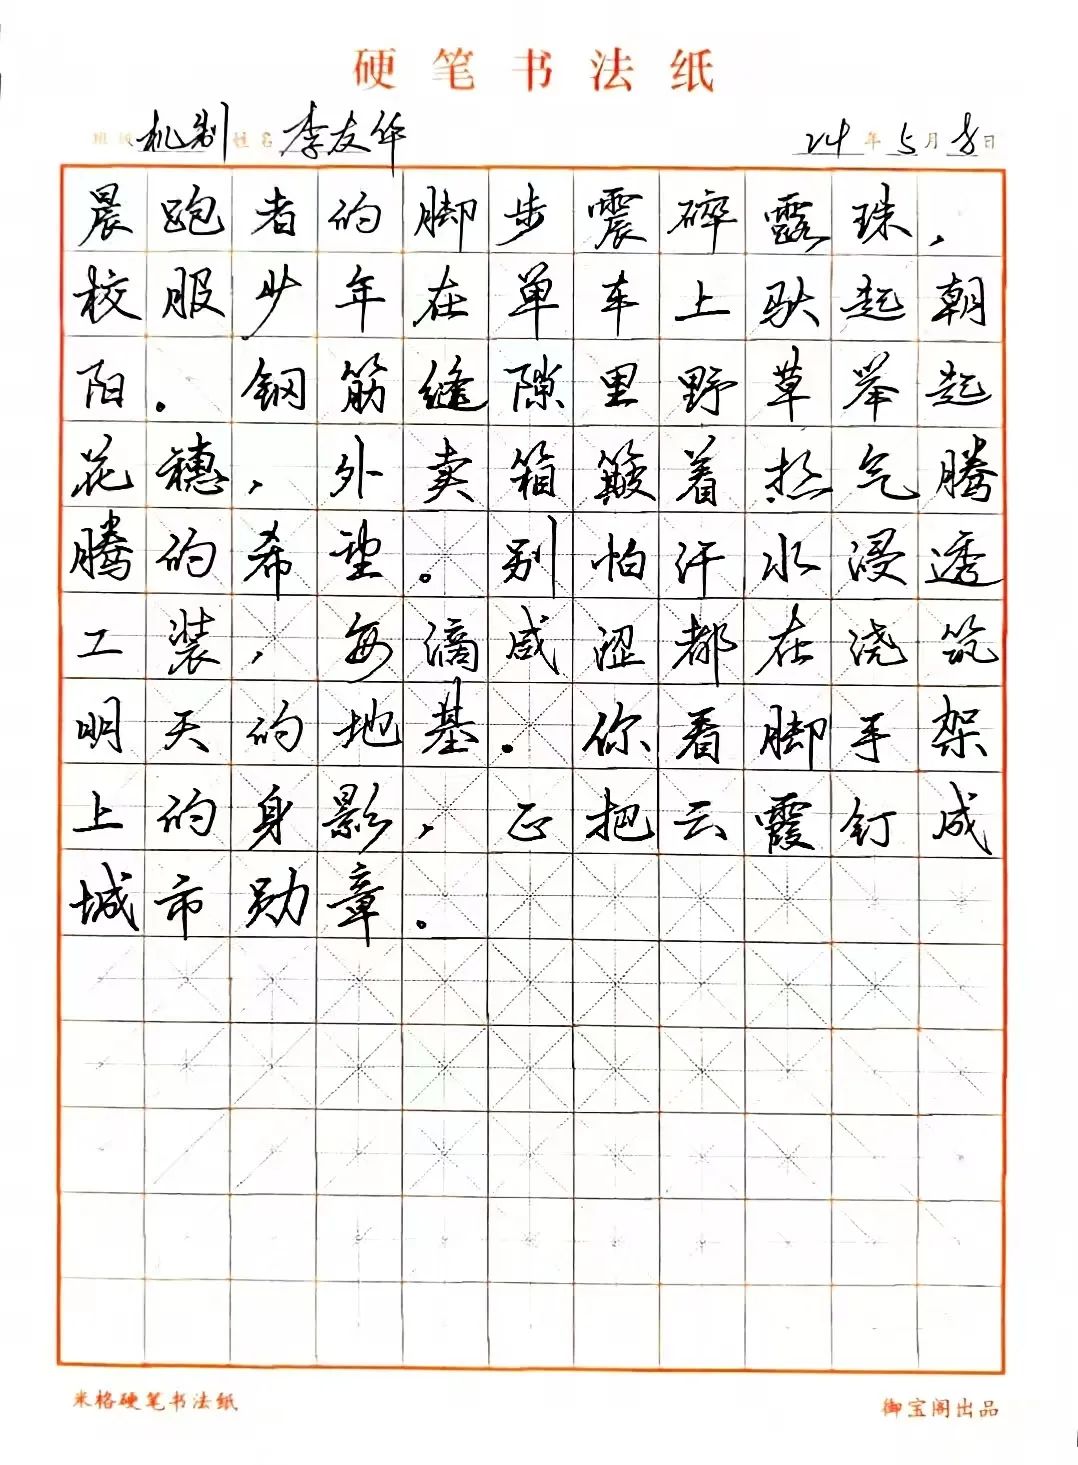 硬笔书法纸
班级 机制 姓名 李友华 24年5月8日
晨跑者的脚步震碎露珠,
校服少年在单车上驮起朝
阳。钢筋缝隙里野草举起
花穗,外卖箱簸着热气腾
腾的希望。别怕汗水浸透
工装,每滴咸涩都在浇筑
明天的地基。你看脚手架
上的身影,正把云霞钉成
城市勋章。
米格硬笔书法纸 御宝阁出品